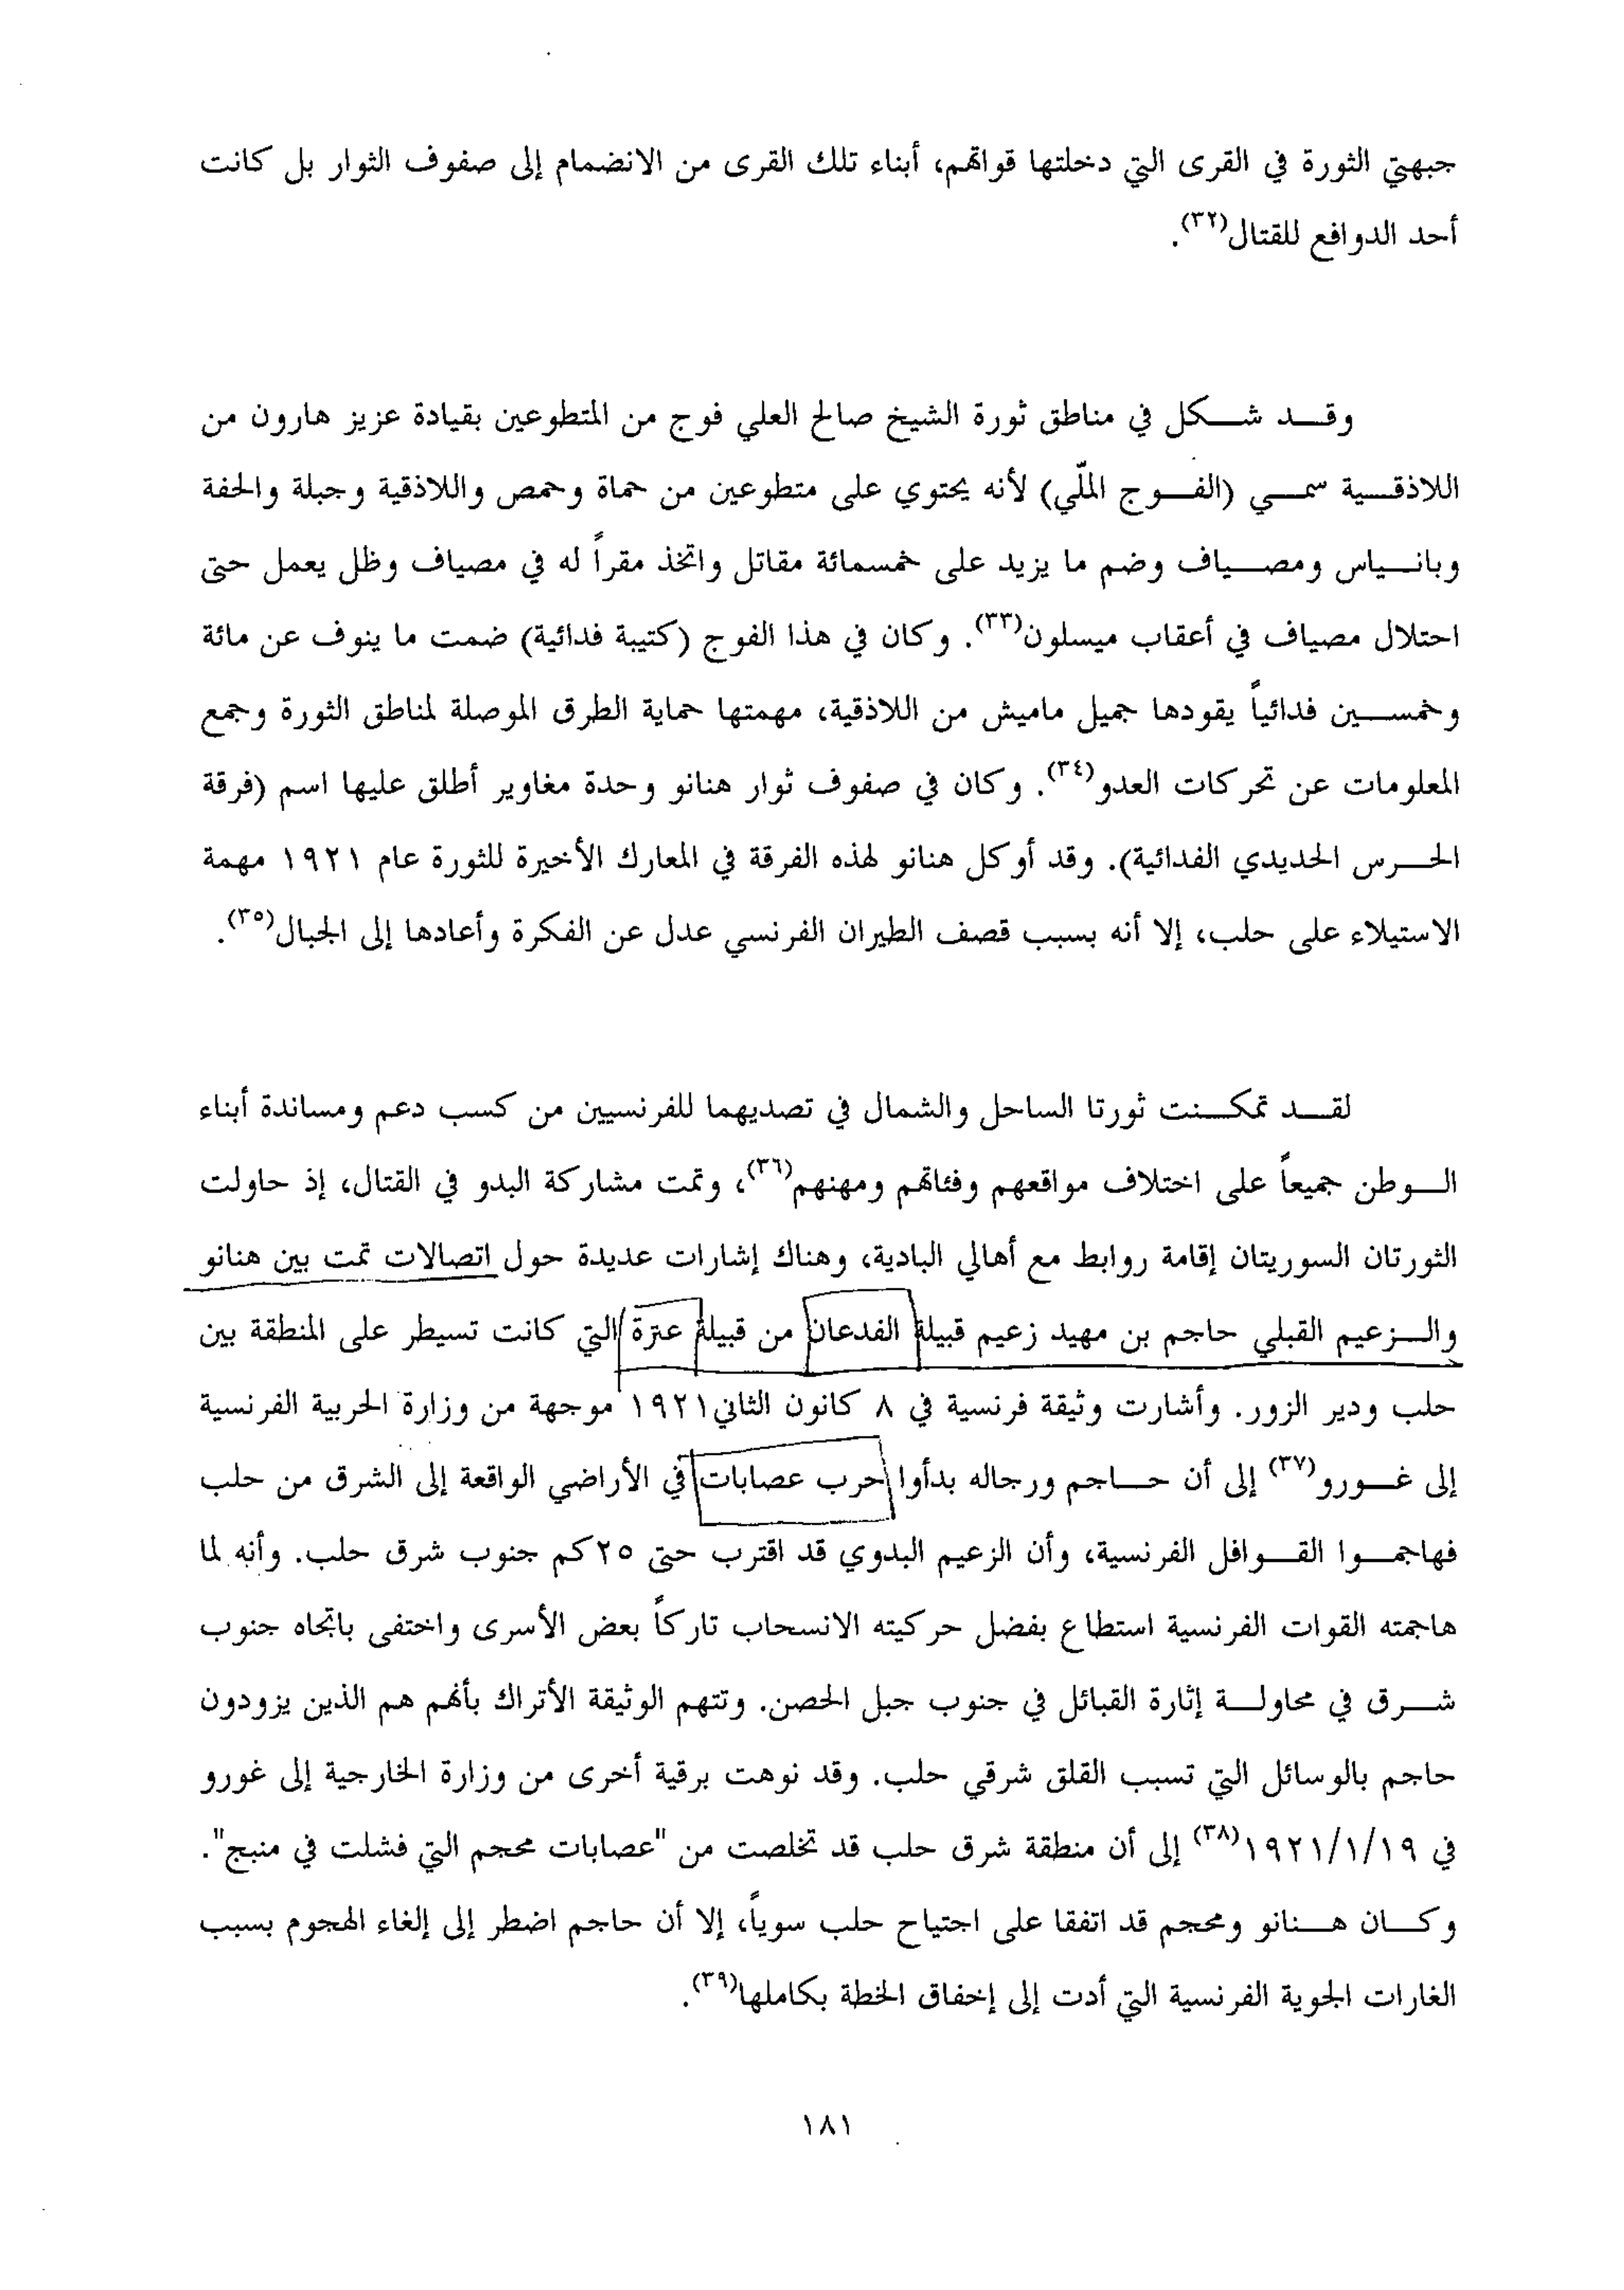 جبهتي الثورة في القرى التي دخلتها قواتهم، أبناء تلك القرى من الانضمام إلى صفوف الثوار بل كانت
أحد الدوافع للقتال(٣٢).
وقد شكل في مناطق ثورة الشيخ صالح العلي فوج من المتطوعين بقيادة عزيز هارون من
اللاذقية سمي (الفوج الملّي) لأنه يحتوي على متطوعين من حماة وحمص واللاذقية وجبلة والحفة
وبانياس ومصياف وضم ما يزيد على خمسمائة مقاتل واتخذ مقراً له في مصياف وظل يعمل حتى
احتلال مصياف في أعقاب ميسلون(٣٣). وكان في هذا الفوج (كتيبة فدائية) ضمت ما ينوف عن مائة
وخمسين فدائياً يقودها جميل ماميش من اللاذقية، مهمتها حماية الطرق الموصلة لمناطق الثورة وجمع
المعلومات عن تحركات العدو(٣٤). وكان في صفوف ثوار هنانو وحدة مغاوير أطلق عليها اسم (فرقة
الحرس الحديدي الفدائية). وقد أوكل هنانو لهذه الفرقة في المعارك الأخيرة للثورة عام ١٩٢١ مهمة
الاستيلاء على حلب، إلا أنه بسبب قصف الطيران الفرنسي عدل عن الفكرة وأعادها إلى الجبال(٣٥).
لقد تمكنت ثورتا الساحل والشمال في تصديهما للفرنسيين من كسب دعم ومساندة أبناء
الوطن جميعاً على اختلاف مواقعهم وفئاتهم ومهنهم(٣٦)، وتمت مشاركة البدو في القتال، إذ حاولت
الثورتان السوريتان إقامة روابط مع أهالي البادية، وهناك إشارات عديدة حول اتصالات تمت بين هنانو
والزعيم القبلي حاجم بن مهيد زعيم قبيلة الفدعان من قبيلة عنزة التي كانت تسيطر على المنطقة بين
حلب ودير الزور. وأشارت وثيقة فرنسية في ٨ كانون الثاني ١٩٢١ موجهة من وزارة الحربية الفرنسية
إلى غورو(٣٧) إلى أن حاجم ورجاله بدأوا حرب عصابات في الأراضي الواقعة إلى الشرق من حلب
فهاجموا القوافل الفرنسية، وأن الزعيم البدوي قد اقترب حتى ٢٥كم جنوب شرق حلب. وأنه لما
هاجمته القوات الفرنسية استطاع بفضل حركيته الانسحاب تاركاً بعض الأسرى واختفى باتجاه جنوب
شرق في محاولة إثارة القبائل في جنوب جبل الحصن. وتتهم الوثيقة الأتراك بأنهم هم الذين يزودون
حاجم بالوسائل التي تسبب القلق شرقي حلب. وقد نوهت برقية أخرى من وزارة الخارجية إلى غورو
في ١٩٢١/١/١٩(٣٨) إلى أن منطقة شرق حلب قد تخلصت من "عصابات محجم التي فشلت في منبج".
وكان هنانو ومحجم قد اتفقا على اجتياح حلب سوياً، إلا أن حاجم اضطر إلى إلغاء الهجوم بسبب
الغارات الجوية الفرنسية التي أدت إلى إخفاق الخطة بكاملها(٣٩).
١٨١